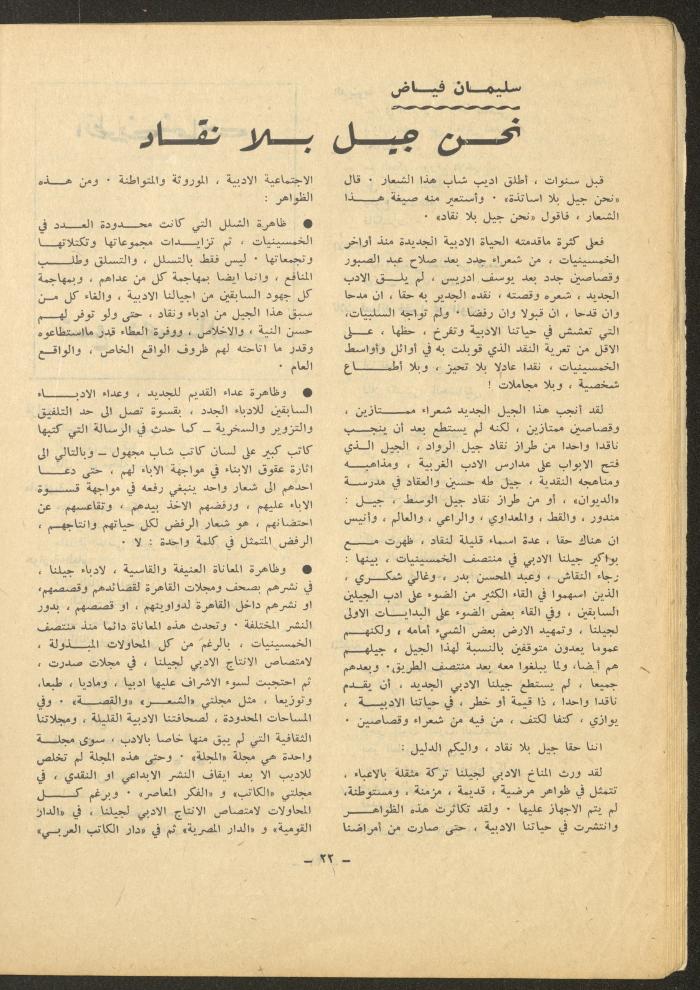 سليمان فياض
نحن جيل بلا نقاد
قبل سنوات ، أطلق اديب شاب هذا الشعار ٠ قال
«نحن جيل بلا اساتذة» ٠ وأستعير منه صيغة هذا
الشعار ، فاقول «نحن جيل بلا نقاد» ٠
فعلى كثرة ماقدمته الحياة الادبية الجديدة منذ أواخر
الخمسينيات ، من شعراء جدد بعد صلاح عبد الصبور
وقصاصين جدد بعد يوسف ادريس ، لم يلق الادب
الجديد ، شعره وقصته ، نقده الجدير به حقا ، ان مدحا
وان قدحا ، ان قبولا وان رفضا ٠ ولم تواجه السلبيات،
التي تعشش في حياتنا الادبية وتفرخ ، حظها ، على
الاقل من تعرية النقد الذي قوبلت به في أوائل وأواسط
الخمسينيات ، نقدا عادلا بلا تحيز ، وبلا أطماع
شخصية ، وبلا مجاملات !
لقد أنجب هذا الجيل الجديد شعراء ممتازين ،
وقصاصين ممتازين ، لكنه لم يستطع بعد أن ينجب
ناقدا واحدا من طراز نقاد جيل الرواد ، الجيل الذي
فتح الابواب على مدارس الادب الغربية ، ومذاهبه
ومناهجه النقدية ، جيل طه حسين والعقاد في مدرسة
«الديوان» ، أو من طراز نقاد جيل الوسط ، جيل :
مندور ، والقط ، والمعداوي ، والراعي ، والعالم ، وأنيس
ان هناك حقا ، عدة اسماء قليلة لنقاد ، ظهرت مع
بواكير جيلنا الادبي في منتصف الخمسينيات ، بينها :
رجاء النقاش ، وعبد المحسن بدر ، وغالي شكري ،
الذين اسهموا في القاء الكثير من الضوء على ادب الجيلين
السابقين ، وفي القاء بعض الضوء على البدايات الاولى
لجيلنا ، وتمهيد الارض بعض الشيء أمامه ، ولكنهم
عموما يعدون متوقفين بالنسبة لهذا الجيل ، جيلهم
هم أيضا، ولما يبلغوا معه بعد منتصف الطريق٠ وبعدهم
جميعا ، لم يستطع جيلنا الادبي الجديد ، أن يقدم
ناقدا واحدا ، ذا قيمة أو خطر ، في حياتنا الادبية ،
يوازي ، كتفا لكتف ، من فيه من شعراء وقصاصين ٠
اننا حقا جيل بلا نقاد ، واليكم الدليل :
لقد ورث المناخ الادبي لجيلنا تركة مثقلة بالاعباء ،
تتمثل في ظواهر مرضية ، قديمة ، مزمنة ، ومستوطنة،
لم يتم الاجهاز عليها ٠ ولقد تكاثرت هذه الظواهر
وانتشرت في حياتنا الادبية ، حتى صارت من أمراضنا
الاجتماعية الادبية ، الموروثة والمتواطنة ٠ ومن هذه
الظواهر :
● ظاهرة الشلل التي كانت محدودة العدد في
الخمسينيات ، ثم تزايدات مجموعاتها وتكتلاتها
وتجمعاتها ٠ ليس فقط بالتسلل ، والتسلق وطلب
المنافع ، وانما ايضا بمهاجمة كل من عداهم ، وبمهاجمة
كل جهود السابقين من اجيالنا الادبية ، والغاء كل من
سبق هذا الجيل من ادباء ونقاد ، حتى ولو توفر لهم
حسن النية ، والاخلاص ، ووفرة العطاء قدر مااستطاعوه
وقدر ما اتاحته لهم ظروف الواقع الخاص ، والواقع
العام ٠
● وظاهرة عداء القديم للجديد ، وعداء الادباء
السابقين للادباء الجدد ، بقسوة تصل الى حد التلفيق
والتزوير والسخرية ــ كما حدث في الرسالة التي كتبها
كاتب كبير على لسان كاتب شاب مجهول ــ وبالتالي الى
اثارة عقوق الابناء في مواجهة الاباء لهم ، حتى دعا
احدهم الى شعار واحد ينبغي رفعه في مواجهة قسوة
الاباء عليهم ، ورفضهم الاخذ بيدهم ، وتقاعسهم عن
احتضانهم ، هو شعار الرفض لكل حياتهم وانتاجهم ،
الرفض المتمثل في كلمة واحدة : لا ٠
● وظاهرة المعاناة العنيفة والقاسية ، لادباء جيلنا ،
في نشرهم بصحف ومجلات القاهرة لقصائدهم وقصصهم،
او نشرهم داخل القاهرة لدواوينهم ، او قصصهم ، بدور
النشر المختلفة ٠ وتحدث هذه المعاناة دائما منذ منتصف
الخمسينيات ، بالرغم من كل المحاولات المبذولة ،
لامتصاص الانتاج الادبي لجيلنا ، في مجلات صدرت ،
ثم احتجبت لسوء الاشراف عليها ادبيا ، وماديا ، طبعا،
وتوزيعا ، مثل مجلتي «الشعر» ، «والقصة» ٠ وفي
المساحات المحدودة ، لصحافتنا الادبية القليلة ، ومجلاتنا
الثقافية التي لم يبق منها خاصا بالادب ، سوى مجلة
واحدة هي مجلة «المجلة» ٠ وحتى هذه المجلة لم تخلص
للاديب الا بعد ايقاف النشر الابداعي او النقدي ، في
مجلتي «الكاتب» و «الفكر المعاصر» ٠ وبرغم كل
المحاولات لامتصاص الانتاج الادبي لجيلنا ، في «الدار
القومية» و «الدار المصرية» ثم في «دار الكاتب العربي»
ــ ٢٢ ــ